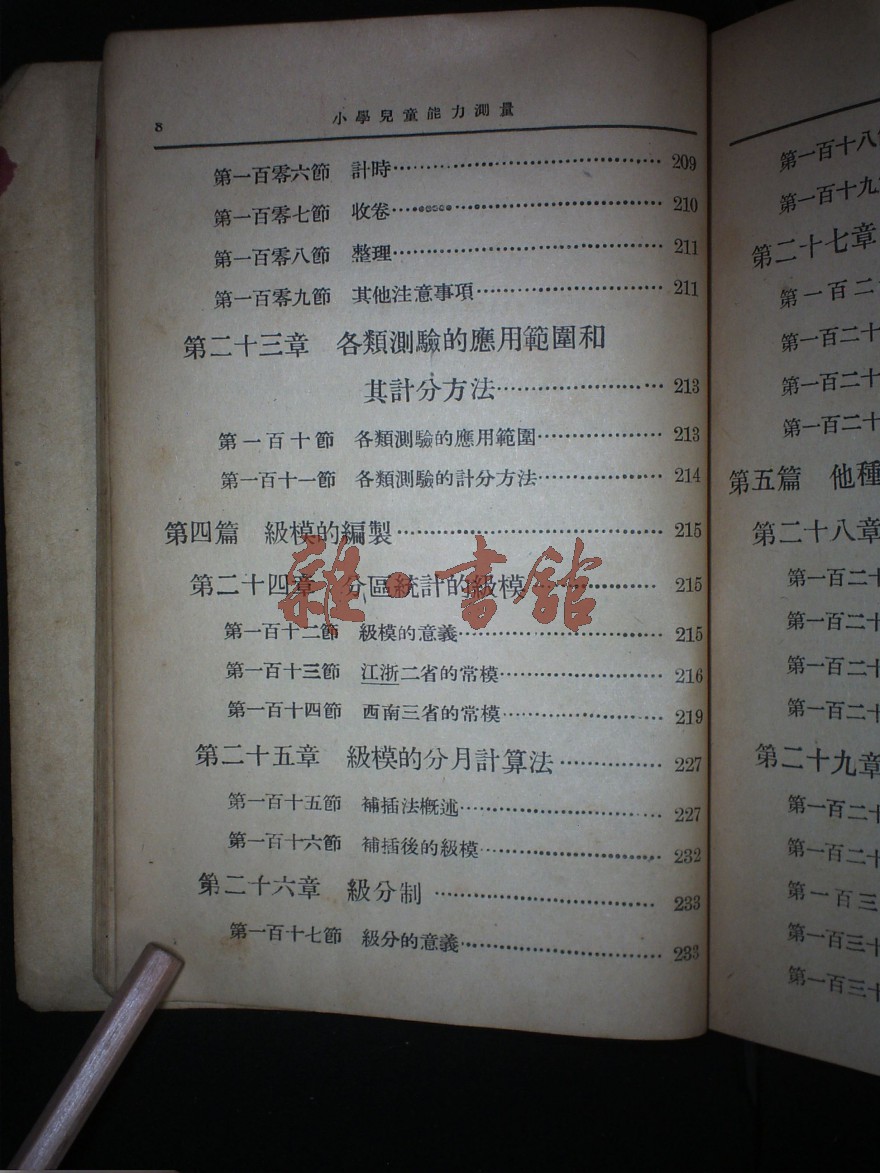 8
小學兒童能力測量
第一百零六節 計時 209
第一百零七節 收卷 210
第一百零八節 整理 211
第一百零九節 其他注意事項 211
第二十三章 各類測驗的應用範圍和
其計分方法 213
第一百十節 各類測驗的應用範圍 213
第一百十一節 各類測驗的計分方法 214
第四篇 級模的編製 215
第二十四章 分區統計的級模 215
第一百十二節 級模的意義 215
第一百十三節 江浙二省的常模 216
第一百十四節 西南三省的常模 219
第二十五章 級模的分月計算法 227
第一百十五節 補插法概述 227
第一百十六節 補插後的級模 232
第二十六章 級分制 233
第一百十七節 級分的意義 233
雜·書館
第一百十八
第一百十九
第二十七章
第一百二
第一百二十
第一百二十
第一百二十
第五篇 他種
第二十八章
第一百二十
第一百二十
第一百二十
第一百二十
第二十九章
第一百二十
第一百二十
第一百三
第一百三十
第一百三十